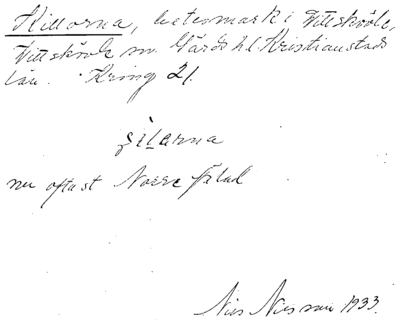 Killorna, betesmark i Vittskövle,
Vittskövle sn. Gärds hd Kristianstads
län. Kring 21.
ʃilarna
nu oftast Norre fälad
Nils Nilsson 1933.